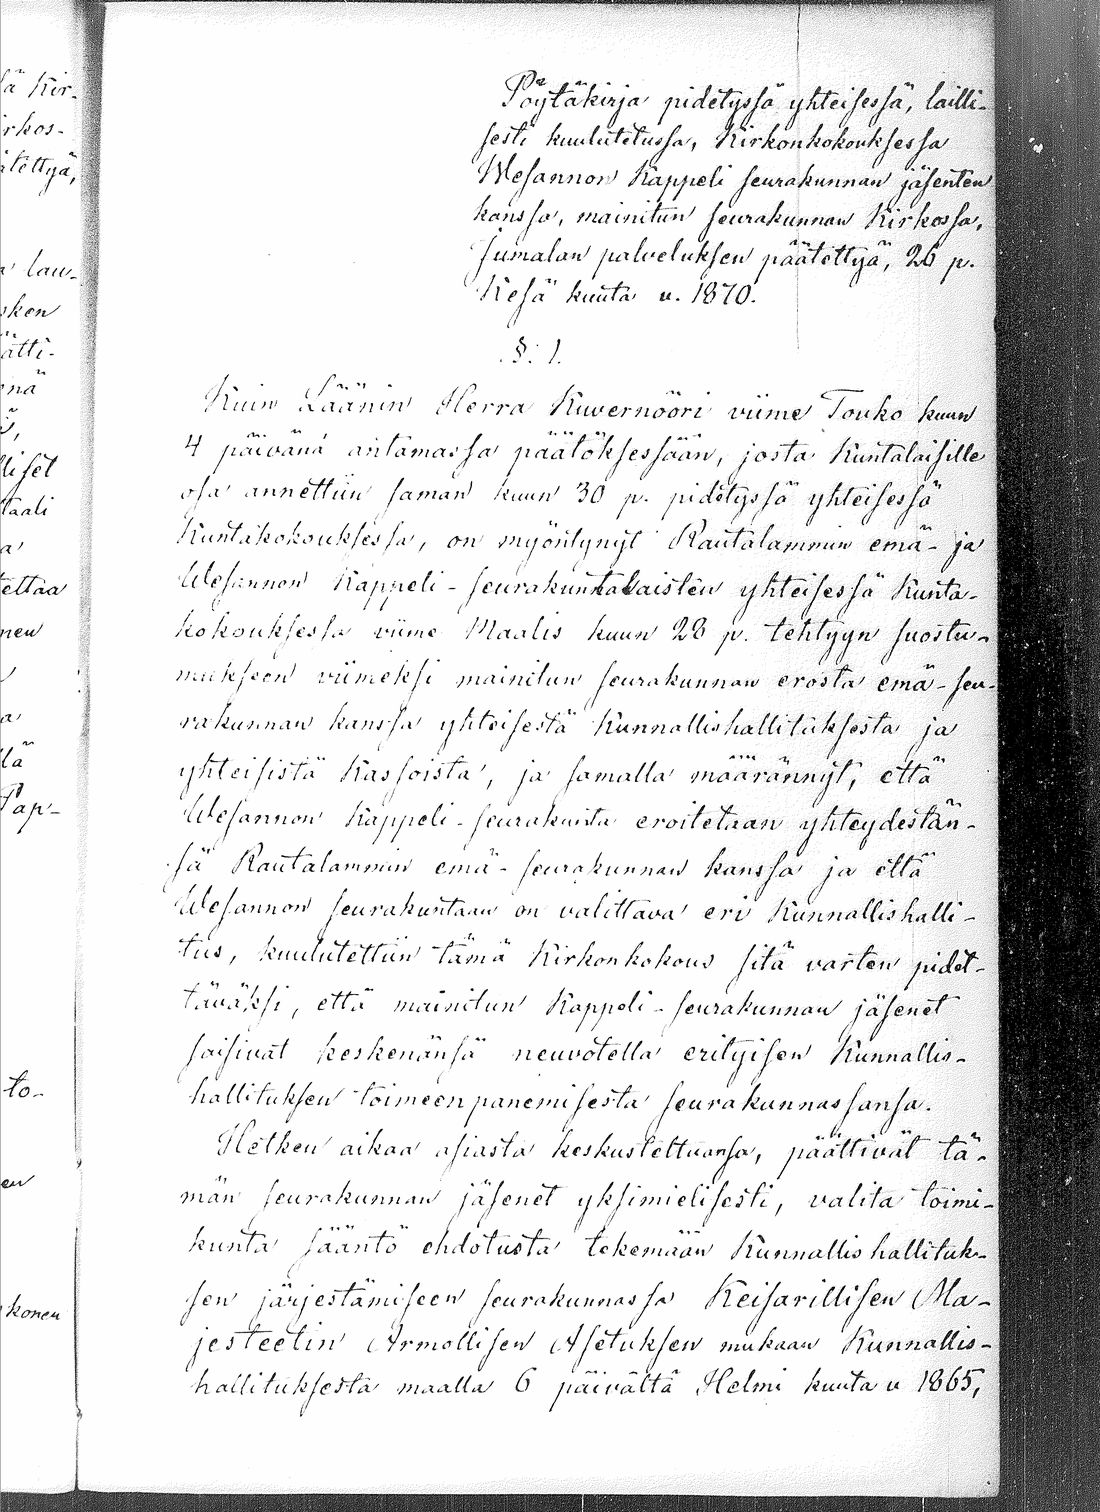 Pöytäkirja pidetyssä yhteisessä, lailli-
sesti kuulutetussa, Kirkonkokouksessa
Wesannon Kappeli seurakunnan jäsenten
kanssa, mainitun seurakunnan Kirkossa,
Jumalan palveluksen päätettyä, 26 p.
Kesä kuuta v. 1870.
§. 1.
Kuin Läänin Herra Kuvernööri viime Touko kuun
4 päivänä antamassa päätöksessään, josta Kuntalaisille
osa annettiin saman kuun 30 p. pidetyssä yhteisessä
Kuntakokouksessa, on myöntynyt Rautalammin emä- ja
Wesannon Kappeli-seurakuntalaisten yhteisessä Kunta-
kokouksessa viime Maalis kuun 28 p. tehtyyn suostu-
mukseen viimeksi mainitun seurakunnan erosta emä-seu-
rakunnan kanssa yhteisestä Kunnallishallituksesta ja
yhteisistä Kassoista, ja samalla määrännyt, että
Wesannon Kappeli-seurakunta eroitetaan yhteydestän-
sä Rautalammin emä-seurakunnan kanssa ja että
Wesannon seurakuntaan on valittava eri Kunnallishalli-
tus, kuulutettiin tämä Kirkonkokous sitä varten pidet-
täväksi, että mainitun Kappeli-seurakunnan jäsenet
saisivat keskenänsä neuvotella erityisen Kunnallis-
hallituksen toimeenpanemisesta seurakunnassansa.
Hetken aikaa asiasta keskusteltuansa, päättivät tä-
män seurakunnan jäsenet yksimielisesti, valita toimi-
kunta sääntö ehdotusta tekemään Kunnallishallituk-
sen järjestämiseen seurakunnassa Keisarillisen Ma-
jesteetin Armollisen Asetuksen mukaan Kunnallis-
hallituksesta maalla 6 päivältä Helmi kuuta v 1865,
sä Kir-
irkos-
ätettyä,
a lau-
skon
ätti-
enä
lliset
taali
tettaa
nen
llä
Pap-
to-
en
konen